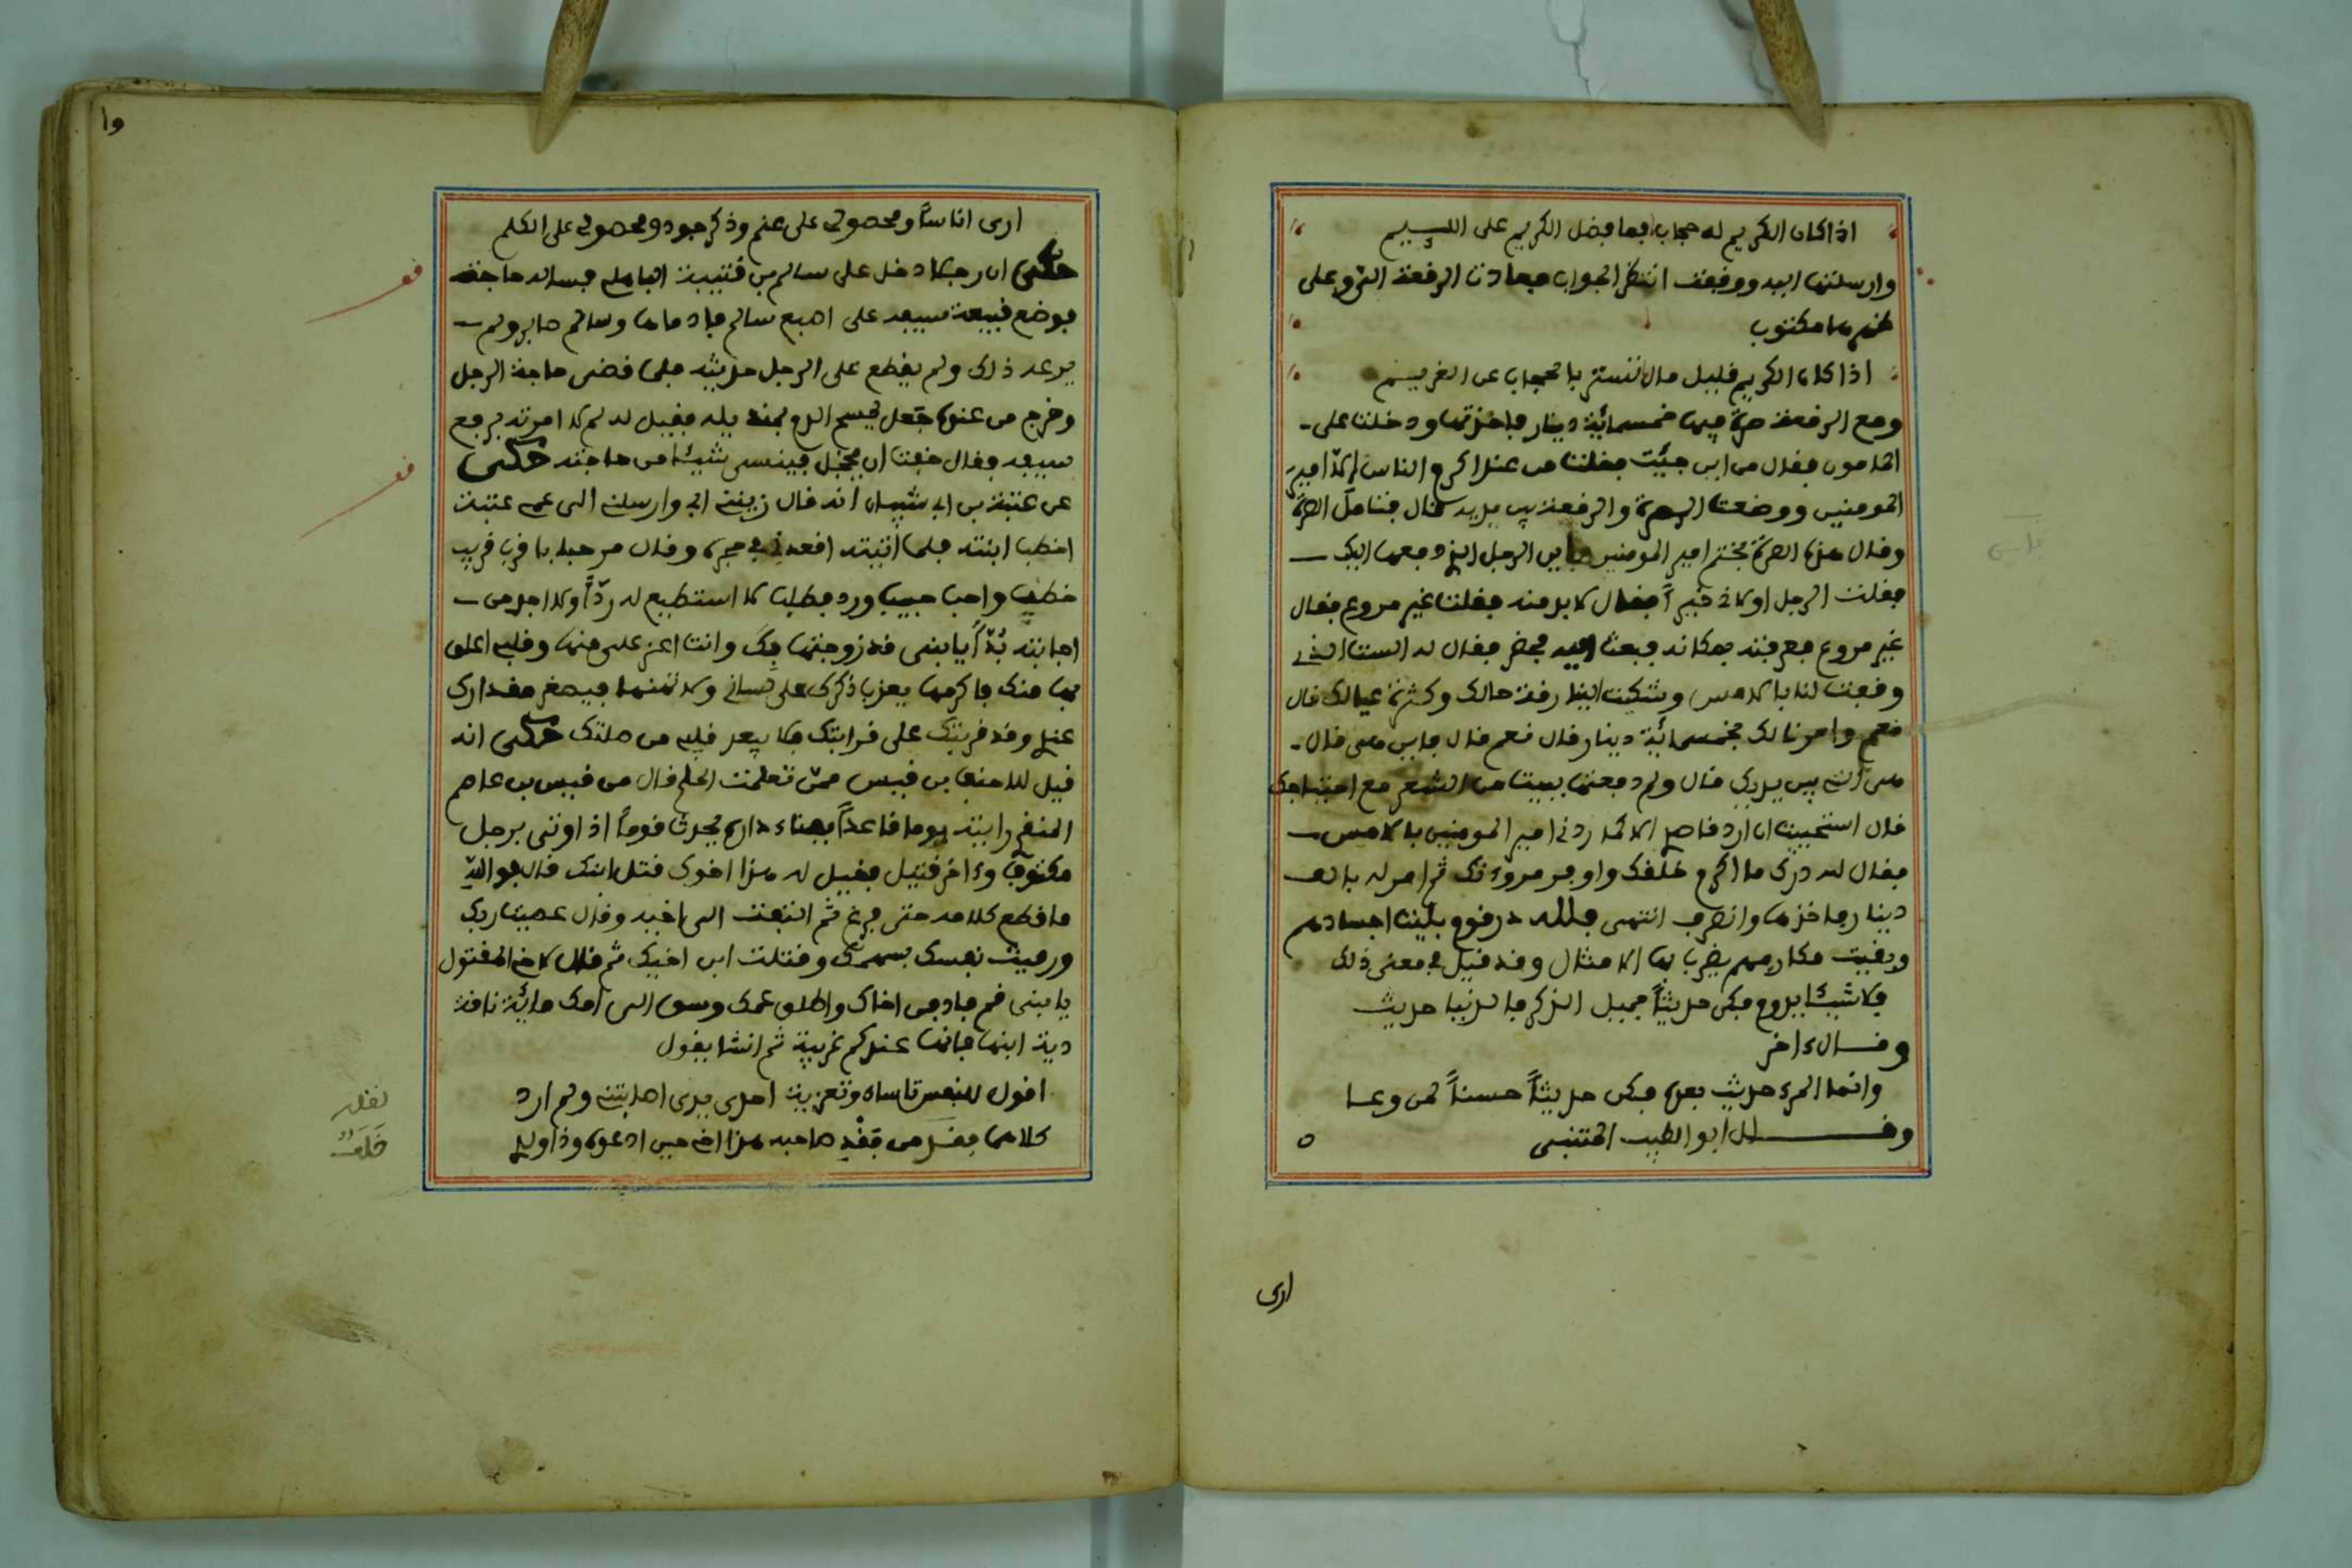 اذا كان الكريم له حجاب فما فضل الكريم على اللييم
وارسلتها اليه ووقفت انتظر الجواب فعادت الرقعة التي وعلى
ظهرها مكتوب
اذا كان الكريم قليل مال تستر بالحجاب عن الغريم
ومع الرقعة صرة فيها خمسمائة دينار فاخذتها ودخلت على
المامون فقال من اين جيت فقلت من عند اكرم الناس الا امير
المومنين ووضعت الصرة والرقعة بين يديه فتامل الصرة
وقال هذه الصرة بختم امير المومنين فاين الرجل الذي دفعها اليك
فقلت الرجل اولاني خيراً فقال لا بد منه فقلت غير مروع فقال
غير مروع فعرفته بمكانه فبعث اليه فحضر فقال له الست الذي
وقفت لنا بالامس وشكيت الينا رقة حالك وكثرة عيالك قال
نعم وامرنا لك بخمسمائة دينار قال نعم قال فاين هى قال
هى التى بين يديك قال ولم دفعتها ببيت من الشعر مع احتياجك
قال استحييت ان ارد قاصدي الا كما ردني امير المومنين بالامس
فقال لله درك ما اكرم خلقك واوفر مروءتك ثم امر له بالف
دينار فاخذها وانصرف انتهى فلله در قوم بليت اجسادهم
وبقيت مكارمهم يضرب بها الامثال وقد قيل في معنى ذلك
فلا شيئا يدوم فكن حديثاً جميل الذكر فالدنيا حديث
وقال ءاخر
وانما المرء حديث بعده فكن حديثاً حسناً لمن وعا
وقال ابو الطيب المتنبى
ارى
وا
ارى اناساً ومحصولي على غنم وذكر جود ومحصولي على الكلم
حكى ان رجلا دخل على سالم بن قتيبة الباهلي فساله حاجة
فوضع قبيعة سيفه على اصبع سالم فادماها وسالم صابر ولم
يرعد ذلك ولم يقطع على الرجل حديثه فلما قضى حاجة الرجل
وخرج من عنده جعل يمسح الدم بمنديله فقيل له لم لا امرته برفع
سيفه فقال خفت ان يخجل فينسى شيئا من حاجته حكى
عن عتبة بن ابي سفيان انه قال زينني ابي وارسلني الى عمي عتبة
اخطب ابنته فلما اتيته اقعدني في حجره وقال مرحبا باقرب قريب
خطب واحب حبيب ورد فطلب لا استطيع له رداً ولا اجد من
اجابته بُدّاً يا بنى قد زوجتها بك وانت اعز على منها وقلبي اعلق
بها منك فاكرمها يعذب ذكرك على لسانى ولا تهنها فيصغر مقدارك
عندي وقد قربتك على قرابتك فلا يبعد قلبي من صلتك حكى انه
قيل للاحنف بن قيس ممن تعلمت الحلم قال من قيس بن عاصم
المنقري رايته يوما قاعداً بفناء داره يحدث قوماً اذ اوتى برجل
مكتوف وءاخر قتيل فقيل له هذا اخوك قتل ابنك قال فوالله
ما قطع كلامه حتى فرغ ثم التفت الى اخيه وقال عصيت ربك
ورميت نفسك بسهمك وقتلت ابن اخيك ثم قال لاخ المقتول
يا بنى قم فادفن اخاك واطلق عمك وسق الى امك مائة ناقة
دية ابنها فانها عندكم غريبة ثم انشا يقول
اقول للنفس تاساء وتعزية احدى يدى اصابتني ولم ارد
كلاهما بفضل من فقد صاحبه هذا اخي حين ادعوه وذا ولدي
قف
قف
خلف